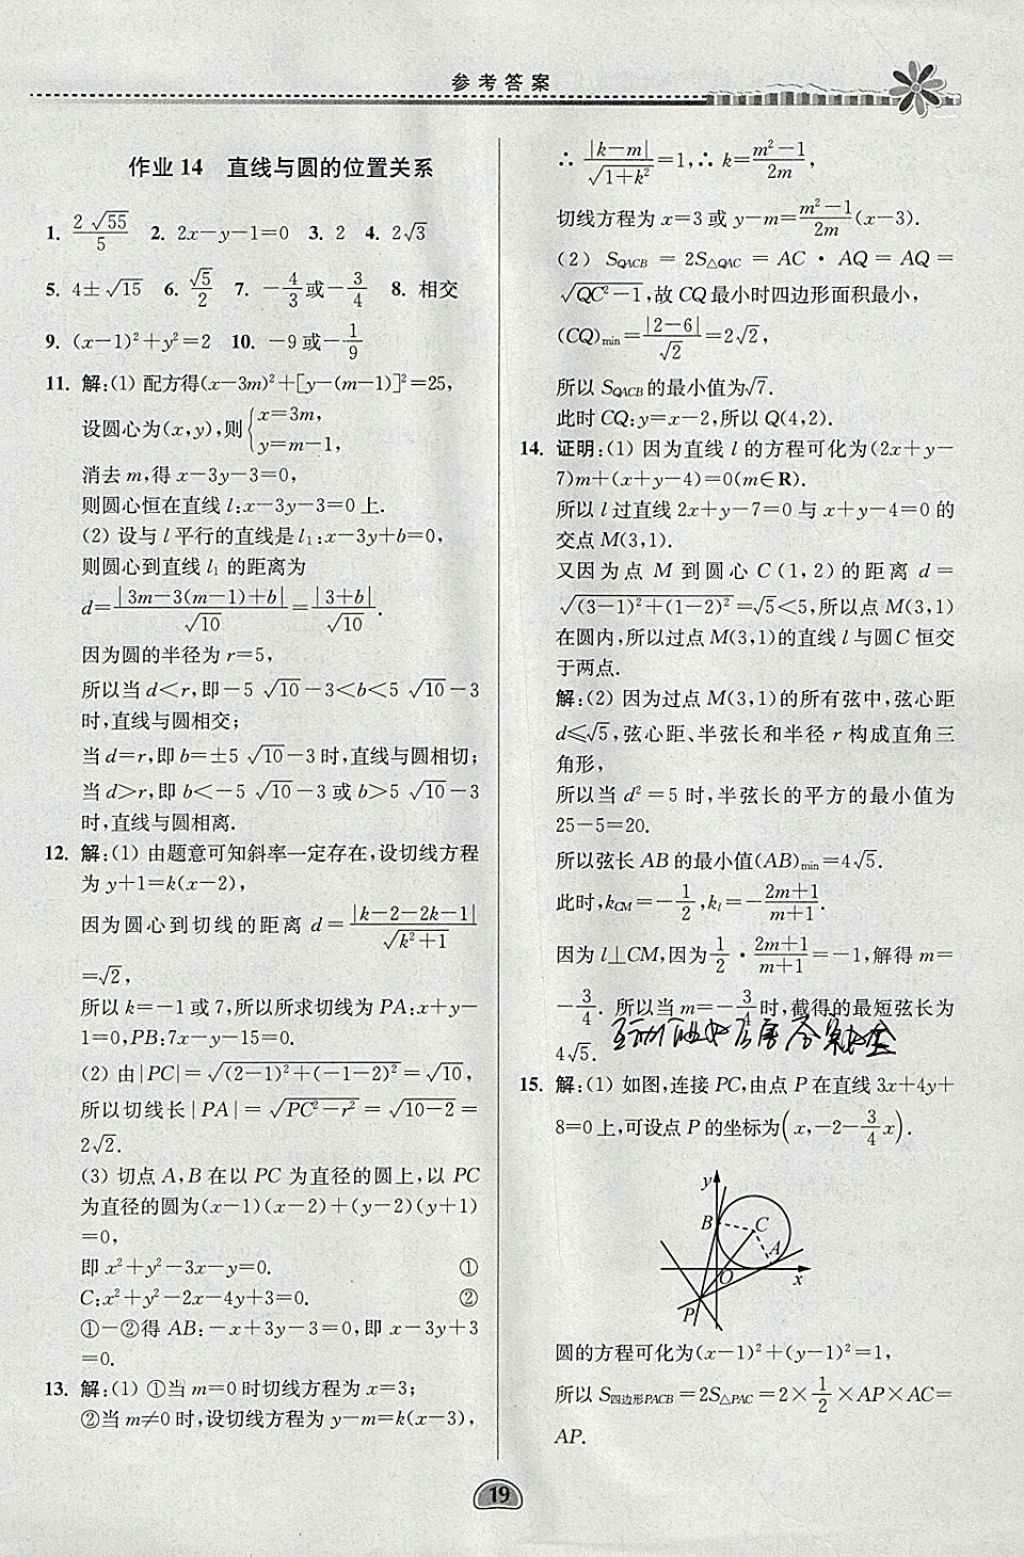 参考答案
作业14 直线与圆的位置关系
1. 2√55/5 2. 2x-y-1=0 3. 2 4. 2√3
5. 4±√15 6. √5/2 7. -4/3或-3/4 8. 相交
9. (x-1)²+y²=2 10. -9或-1/9
11. 解:(1) 配方得(x-3m)²+[y-(m-1)]²=25,
设圆心为(x,y),则{x=3m,
y=m-1,
消去m,得x-3y-3=0,
则圆心恒在直线l:x-3y-3=0上.
(2) 设与l平行的直线是l₁:x-3y+b=0,
则圆心到直线l₁的距离为
d=|3m-3(m-1)+b|/√10=|3+b|/√10.
因为圆的半径为r=5,
所以当d<r,即-5√10-3<b<5√10-3
时,直线与圆相交;
当d=r,即b=±5√10-3时,直线与圆相切;
当d>r,即b<-5√10-3或b>5√10-3
时,直线与圆相离.
12. 解:(1) 由题意可知斜率一定存在,设切线方程
为y+1=k(x-2),
因为圆心到切线的距离d=|k-2-2k-1|/√(k²+1)
=√2,
所以k=-1或7,所以所求切线为PA:x+y-
1=0,PB:7x-y-15=0.
(2) 由|PC|=√((2-1)²+(-1-2)²)=√10,
所以切线长|PA|=√(PC²-r²)=√(10-2)=
2√2.
(3) 切点A,B在以PC为直径的圆上,以PC
为直径的圆为(x-1)(x-2)+(y-2)(y+1)
=0,
即x²+y²-3x-y=0. ①
C:x²+y²-2x-4y+3=0. ②
①-②得AB:-x+3y-3=0,即x-3y+3
=0.
13. 解:(1) ①当m=0时切线方程为x=3;
②当m≠0时,设切线方程为y-m=k(x-3),
∴ |k-m|/√(1+k²)=1,∴k=(m²-1)/2m,
切线方程为x=3或y-m=(m²-1)/2m(x-3).
(2) S_QACB=2S△QAC=AC·AQ=AQ=
√(QC²-1),故CQ最小时四边形面积最小,
(CQ)min=|2-6|/√2=2√2,
所以S_QACB的最小值为√7.
此时CQ:y=x-2,所以Q(4,2).
14. 证明:(1) 因为直线l的方程可化为(2x+y-
7)m+(x+y-4)=0(m∈R).
所以l过直线2x+y-7=0与x+y-4=0的
交点M(3,1).
又因为点M到圆心C(1,2)的距离d=
√((3-1)²+(1-2)²)=√5<5,所以点M(3,1)
在圆内,所以过点M(3,1)的直线l与圆C恒交
于两点.
解:(2) 因为过点M(3,1)的所有弦中,弦心距
d≤√5,弦心距、半弦长和半径r构成直角三
角形,
所以当d²=5时,半弦长的平方的最小值为
25-5=20.
所以弦长AB的最小值(AB)min=4√5.
此时,k_CM=-1/2,k_l=-(2m+1)/(m+1).
因为l⊥CM,因为1/2·(2m+1)/(m+1)=-1,解得m=
-3/4. 所以当m=-3/4时,截得的最短弦长为
4√5.
15. 解:(1) 如图,连接PC,由点P在直线3x+4y+
8=0上,可设点P的坐标为(x,-2-3/4x).
y
B
C
A
O
x
P
圆的方程可化为(x-1)²+(y-1)²=1,
所以S四边形PACB=2S△PAC=2×1/2×AP×AC=
AP.
19